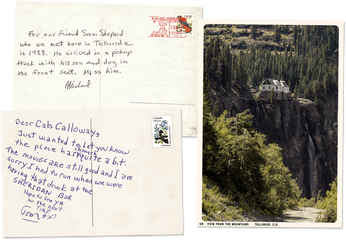 For our friend Sam Shepard
who we met here in Telluride
in 1988. He arrived in a pickup
truck with his son and dog in
the front seat. Miss him.
Dear Cab Calloway,
Just wanted to let you know
the place has changed quite a bit.
The movies are still good and I am
sorry I had to run when we were
having that drink at the
SHERIDAN BAR
Hope to see ya
on the next
TIME
VIEW FROM THE MOUNTAINS TELLURIDE, C.O.